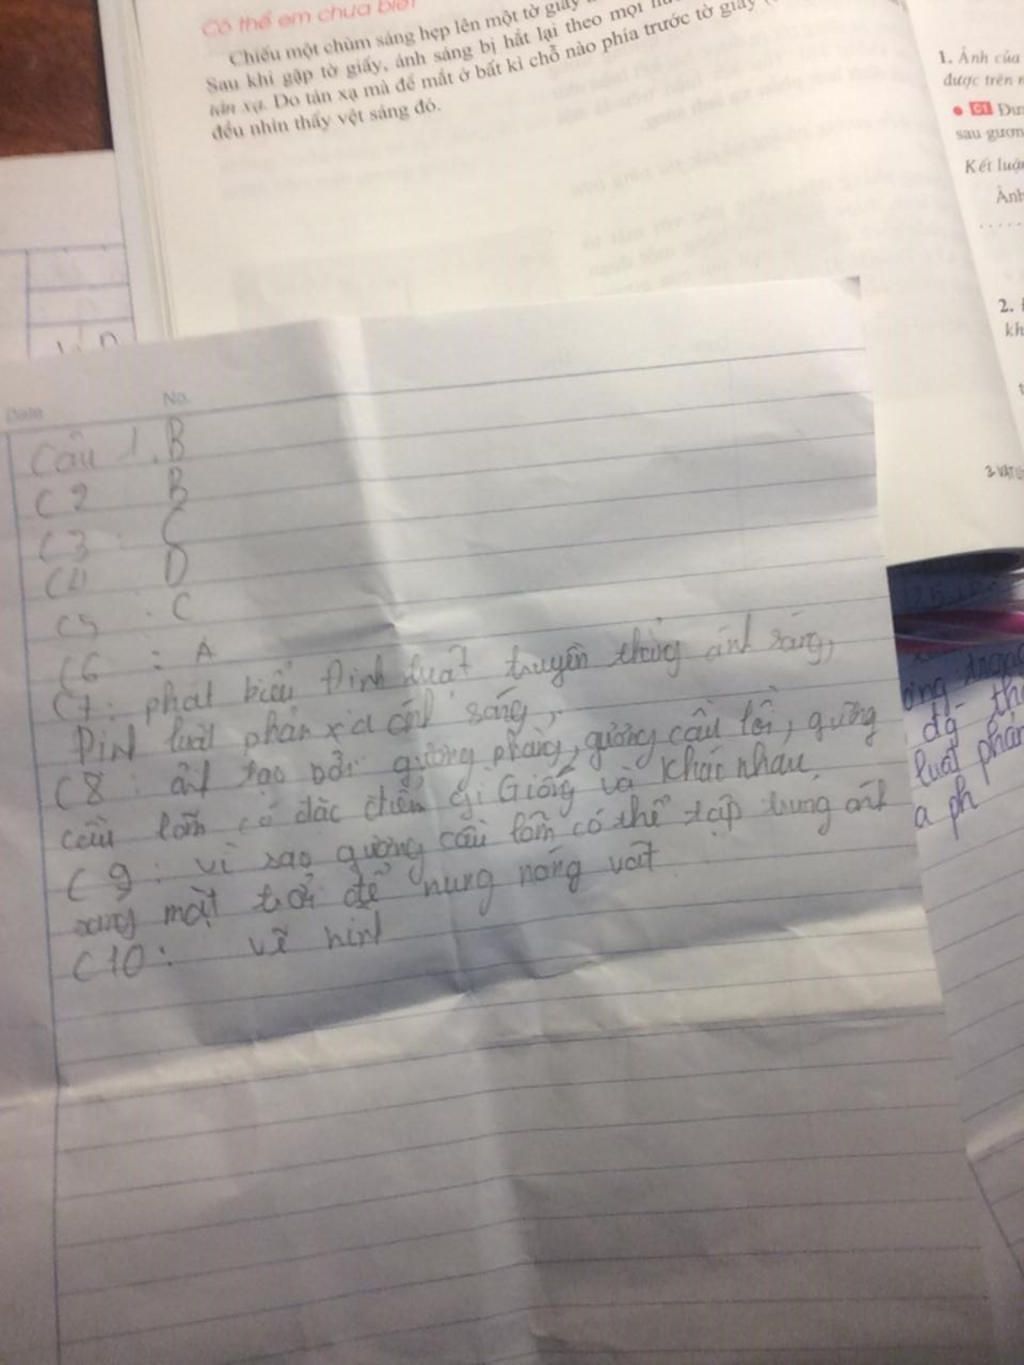 Có thể em chưa biết
Chiếu một chùm sáng hẹp lên một tờ giấy
Sau khi gặp tờ giấy, ánh sáng bị hắt lại theo mọi
tán xạ. Do tán xạ mà để mắt ở bất kì chỗ nào phía trước tờ giấy
đều nhìn thấy vệt sáng đó.
1. Ảnh của
được trên
C1
sau gươn
Kết luận
Ảnh
2.
kh
Date No.
Câu 1. B
C2 B
C3 C
C4 D
C5 . C
C6 : A
C7: phát biểu Định luật truyền thẳng ánh sáng,
Địnl luật phản xạ ánl sáng,
C8: ảnl tạo bởi gương phẳng, gương cầu lồi, gương
cầu lõm có đặc điểm gì Giống và khác nhau
C9: vì sao gương cầu lõm có thể tập trung ánl
sang mặt trời để nung nóng vật
C10: vẽ hìnl
luật phản
a ph